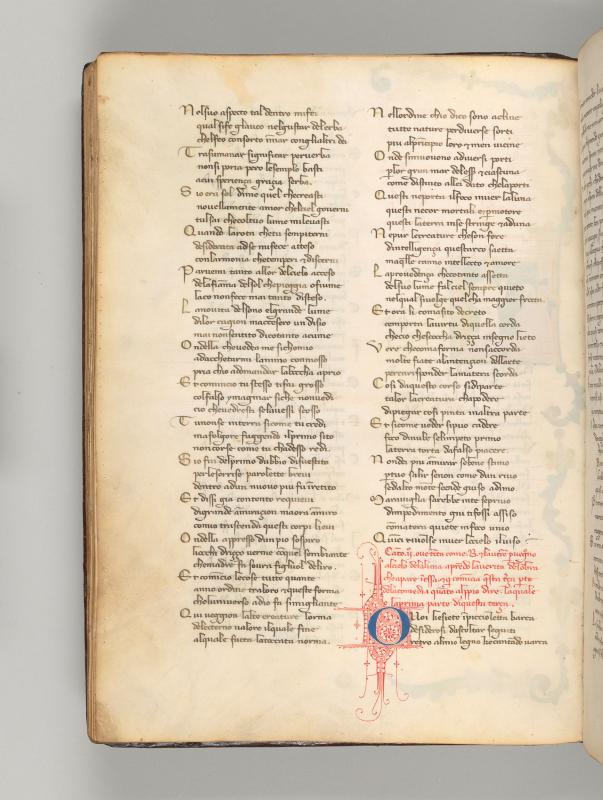 Nelsuo aspecto tal dentro mi fei
qual sife glauco nelgustar delerba
chelfeo consorto imar congli altri dei
Trasumanar significar perverba
non si poria pero lesemplo basti
acui sperienca gracia serba.
Sio era sol dime quel checreasti
novellamente amor chelciel governi
tulsai checoltuo lume mi levasti
Quando larota chetu sempiterni
desiderata ad se mi fece atteso
conlarmonia chetemperi et discerni
Parvemi tanto allor delcielo acceso
dela fiama delsol che pioggia ofiume
laco non fece mai tanto disteso.
La novita delsono elgrande lume
dilor cagion maccesero un disio
mai non sentito dicotanto acume
Ondella chevedea me sichomio
ad acchetarmi lanimo comosso
pria chio ad mandar labocha aprio
Et comincio tu stesso ti fai grosso
colfalso ymaginar siche non vedi
cio chevedresti selavessi scosso
Tu non se interra sicome tu credi
ma folgore fuggendo ilproprio sito
non corse come tu chadesso redi.
Sio fui delprimo dubbio disvestito
per lesorrise parolette brevi
dentro adun nuovo piu fu inretito
Et dissi gia contento requievi
digrande amiracion ma ora amiro
como trascenda questi corpi lievi
Ondella appresso dun pio sospiro
liocchi drizo verme conquel sembiante
che madre fa sovra figliuol deliro.
Et comincio lecose tutte quante
anno ordine traloro et questo forma
chelluniverso adio fa simigliante
Qui veggion lalte creature lorma
deletterno valore ilquale fine
alquale fatta latoccata norma.
Nellordine chio dico sono acline
tutte nature perdiverse sorti
piu alprincipio loro et men vicine
Onde simuovono adiversi porti
per lo gran mar delessere et ciascuna
como distinto allei dato chelaporti
Questi neporta ilfoco inver laluna
questi necor mortali e promotore
questi laterra inse stringe et aduna
Ne pur le creature cheson fore
dintelligenca questarco saetta
ma quelle canno intellecto et amore
La providenca checotanto assetta
delsuo lume fa lciel sempre quieto
nelqual sivolge quel cha maggior fretta.
Et ora li comasito decreto
cemporta lavirtu diquella corda
checio chescocca driza insegno lieto
Vero checome forma non saccorda
molte fiate alantencion dellarte
percarisponder lamatera e sorda
Cosi daquesto corso sidiparte
talor lacreatura cha podere
dipiegar cosi pinta inaltra parte
Et sicome veder sipuo cadere
foco dinube selimpeto primo
laterra torta dafalso piacere
Non dei piu amirar sebene stimo
per tuo salir se non come dun rivo
sedalto monte scende giuso adimo.
Maraviglia sarebbe inte se privo
dimpedimento giu ti fossi assiso
comaterra quiete infoco vivo
Quinci rivolse inver lo cielo ilviso
O Voi che siete in piccioletta barca
desiderosi dascoltar seguiti
retro almio legno che cantando varca